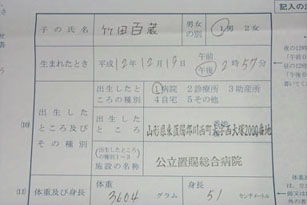 記入の
子の氏名 竹田百蔵 男女の別 1男 2女
生まれたとき 平成12年12月19日 午前 午後 2時57分
(10)
出生したところの種別 1病院 2診療所 3助産所
4自宅 5その他
出生したところ及びその種別
出生したところ 山形県東置賜郡川西町 大字西大塚2000番地
(出生したところの種別1~3)
施設の名称 公立置賜総合病院
(11)
体重及び身長 体重 3604 グラム 身長 51 センチメートル